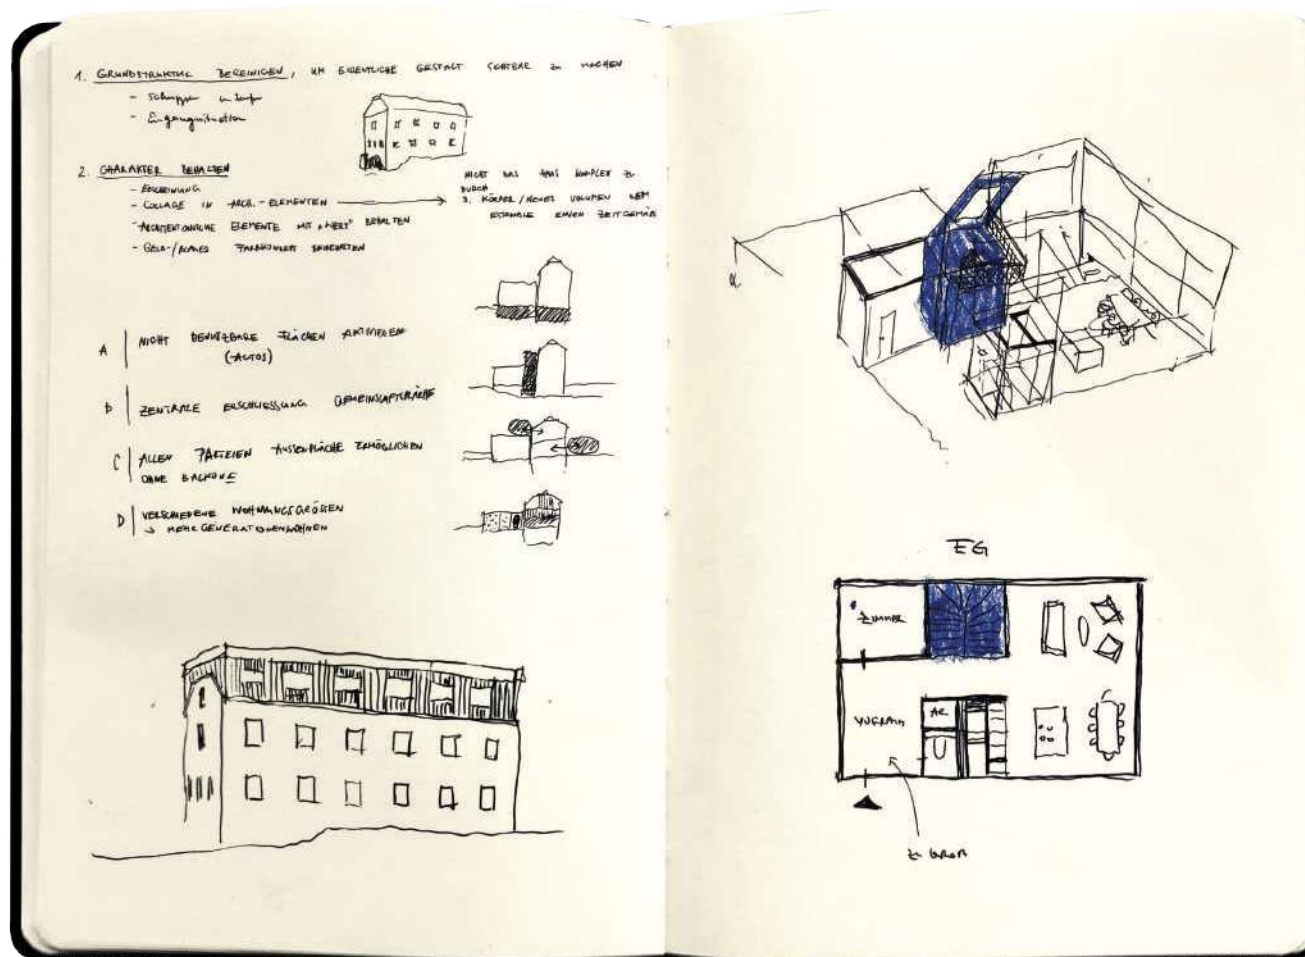 1. GRUNDSTRUKTUR BEREINIGEN, UM EIGENTLICHE GESTALT SICHTBAR ZU MACHEN
- Schuppen
- Eingangsituation
2. CHARAKTER BEHALTEN
- ERSCHEINUNG
- COLLAGE IN ARCH.-ELEMENTEN
- ARCHITEKTONISCHE ELEMENTE MIT "WERT" BEHALTEN
- GELB-/BLAUES FARBKONZEPT BEIBEHALTEN
NICHT DAS HAUS KOMPLEX ZU
DURCH
3. KÖRPER/NEUES VOLUMEN DEM
ENSEMBLE EINEN ZEITGEMÄß
A NICHT BENUTZBARE FLÄCHEN AKTIVIEREN
(-AUTOS)
B ZENTRALE ERSCHLIESSUNG GEMEINSCHAFTSFLÄCHE
C ALLEN PARTEIEN AUSSENFLÄCHE ERMÖGLICHEN
OHNE BALKONE
D VERSCHIEDENE WOHNUNGSGRÖSSEN
→ MEHRGENERATIONENWOHNEN
EG
ZIMMER
VORRAUM
AR
zu GROß